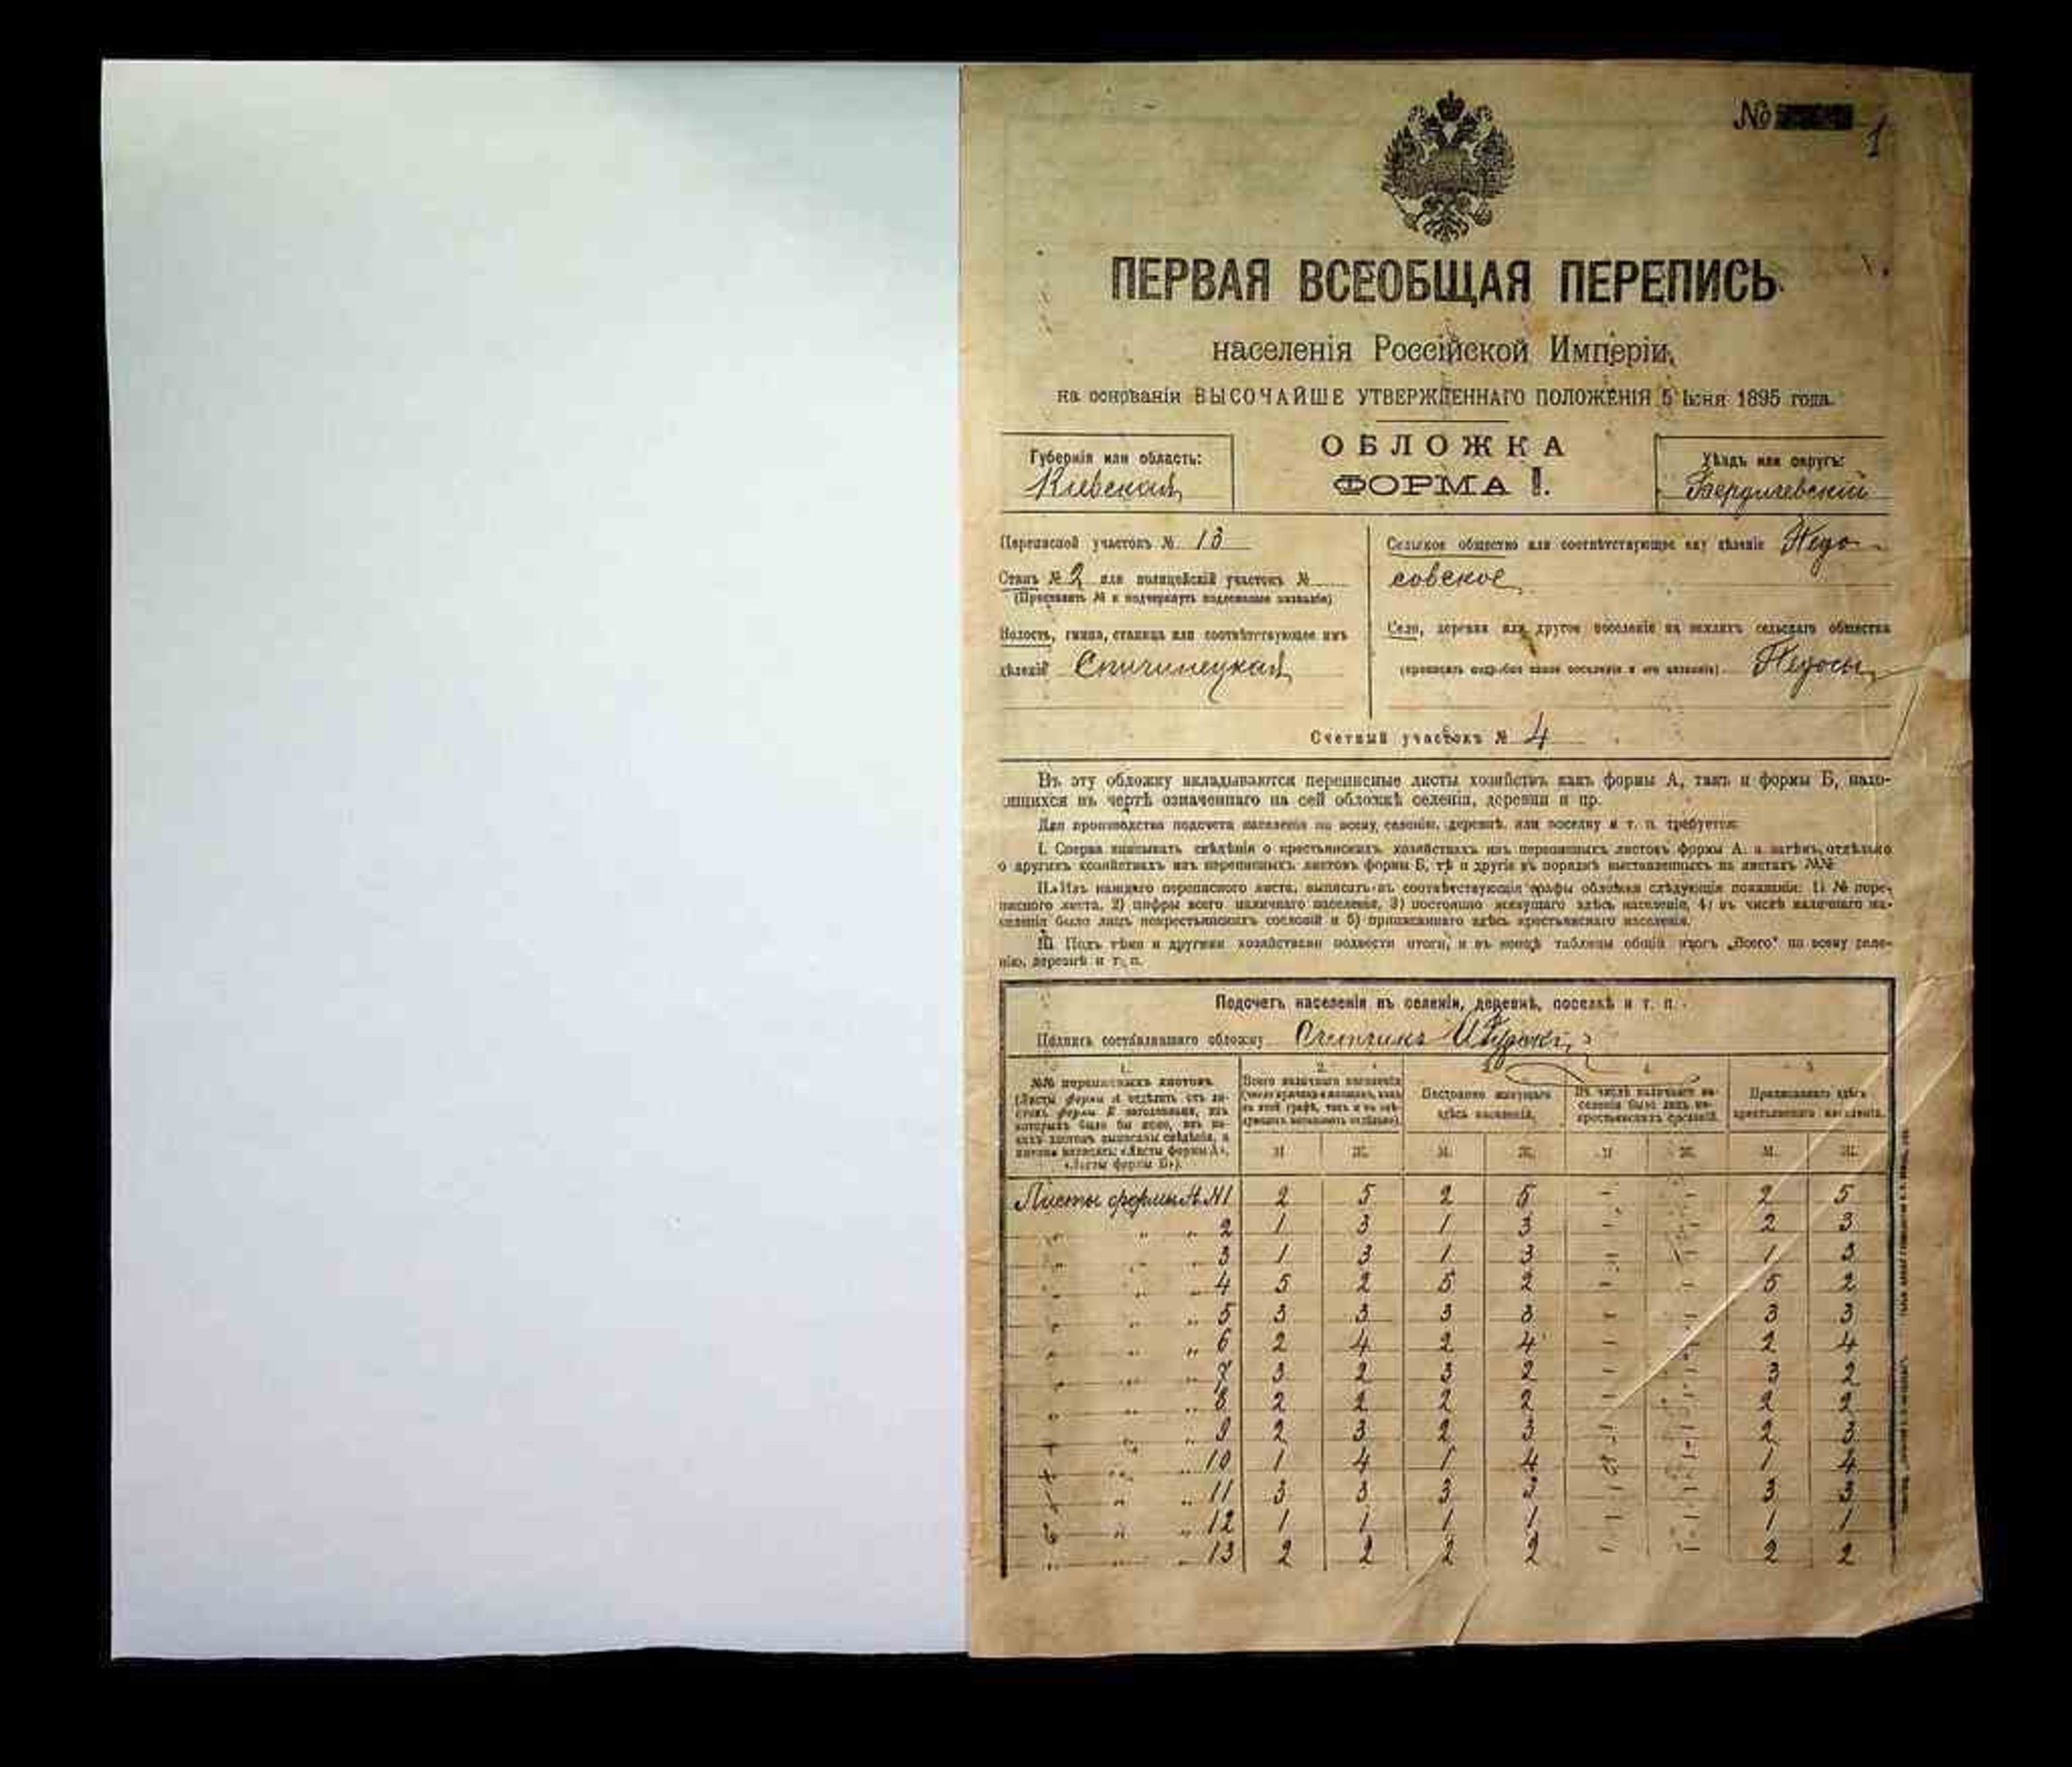 № 1
ПЕРВАЯ ВСЕОБЩАЯ ПЕРЕПИСЬ
населенія Россійской Имперіи,
на основаніи ВЫСОЧАЙШЕ УТВЕРЖДЕННАГО ПОЛОЖЕНІЯ 5 Іюня 1895 года.
ОБЛОЖКА
ФОРМА I.
Губернія или область:
Кіевская
Уѣздъ или округъ:
Бердичевскій
Переписной участокъ № 13
Станъ № 2 или полицейскій участокъ №
(Проставить № и подчеркнуть подлежащее названіе)
Волость, гмина, станица или соотвѣтствующее имъ
дѣленіе Спичинецкая
Сельское общество или соотвѣтствующее ему дѣленіе Недо-
совское
Село, деревня или другое поселеніе на земляхъ сельскаго общества
(прописать подробно какое поселеніе и его названіе) Недосы
Счетный участокъ № 4
Въ эту обложку вкладываются переписные листы хозяйствъ какъ формы А, такъ и формы Б, нахо-
дящихся въ чертѣ означеннаго на сей обложкѣ селенія, деревни и пр.
Для производства подсчета населенія по всему селенію, деревнѣ или поселку и т. п. требуется:
I. Сперва вписывать свѣдѣнія о крестьянскихъ хозяйствахъ изъ переписныхъ листовъ формы А, а затѣмъ, отдѣльно
о другихъ хозяйствахъ изъ переписныхъ листовъ формы Б, тѣ и другіе въ порядкѣ выставленныхъ на листахъ №№
II. Изъ каждаго переписного листа, выписать въ соотвѣтствующія графы обложки слѣдующія показанія: 1) № пере-
писного листа, 2) цифры всего наличнаго населенія, 3) постоянно живущаго здѣсь населенія, 4) въ числѣ наличнаго на-
селенія было лицъ некрестьянскихъ сословій и 5) приписаннаго здѣсь крестьянскаго населенія.
III. Подъ тѣми и другими хозяйствами подвести итоги, и въ концѣ таблицы общій итогъ „Всего“ по всему селе-
нію, деревнѣ и т. п.
Подсчетъ населенія въ селеніи, деревнѣ, поселкѣ и т. п.
Подпись составлявшаго обложку Счетчикъ
1. 2. 3 4 5
№№ переписныхъ листовъ
(Листы формы А отдѣлить отъ ли-
стовъ формы Б заголовками, изъ
которыхъ было бы ясно, изъ ка-
кихъ листовъ выписаны свѣдѣнія, а
именно написать: «Листы формы А»,
«Листы формы Б»).
Всего наличнаго населенія
Постоянно живущаго
здѣсь населенія.
Въ числѣ наличнаго на-
селенія было лицъ не-
крестьянскихъ сословій.
Приписаннаго здѣсь
крестьянскаго населенія.
М Ж. М. Ж. М Ж. М. Ж.
Листы формы А №1 2 5 2 5 - - 2 5
„ „ „ 2 1 3 1 3 - - 2 3
„ „ „ 3 1 3 1 3 - - 1 3
„ „ „ 4 5 2 5 2 - - 5 2
„ „ „ 5 3 3 3 3 - - 3 3
„ „ „ 6 2 4 2 4 - - 2 4
„ „ „ 7 3 2 3 2 - - 3 2
„ „ „ 8 2 2 2 2 - - 2 2
„ „ „ 9 2 3 2 3 - - 2 3
„ „ „ 10 1 4 1 4 - - 1 4
„ „ „ 11 3 3 3 3 - - 3 3
„ „ „ 12 1 1 1 1 - - 1 1
„ „ „ 13 2 2 2 2 - - 2 2